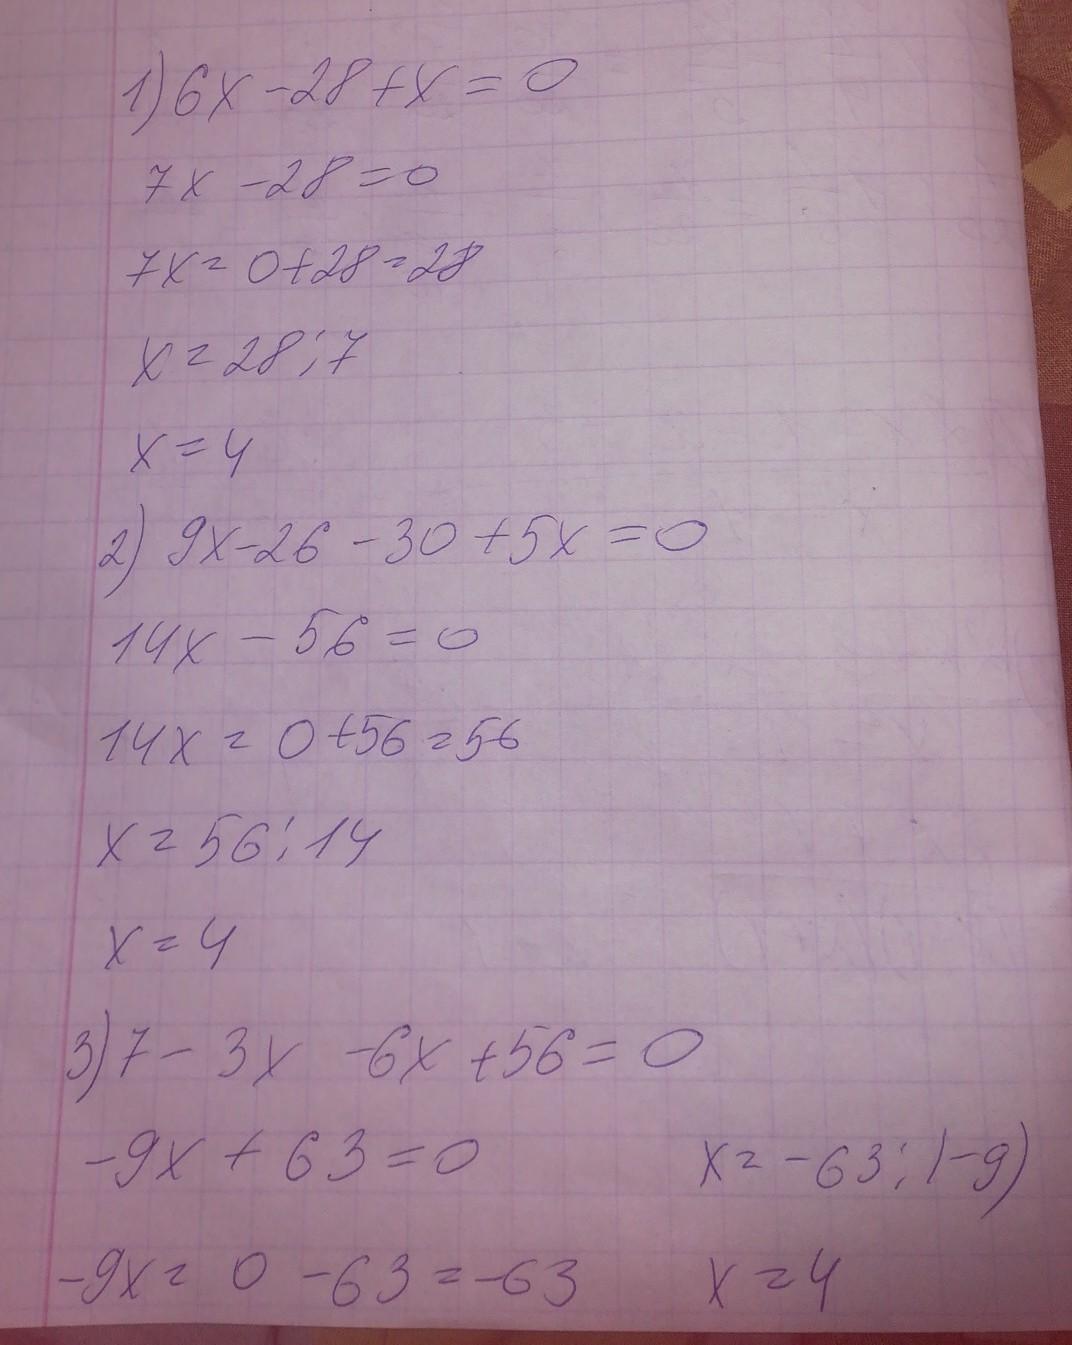 1) 6x - 28 + x = 0
7x - 28 = 0
7x = 0 + 28 = 28
x = 28 : 7
x = 4
2) 9x - 26 - 30 + 5x = 0
14x - 56 = 0
14x = 0 + 56 = 56
x = 56 : 14
x = 4
3) 7 - 3x - 6x + 56 = 0
-9x + 63 = 0
-9x = 0 - 63 = -63
x = -63 : (-9)
x = 4